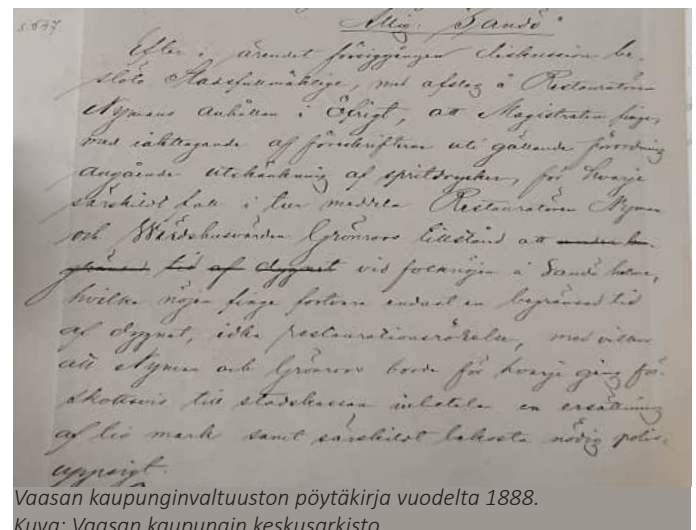 s. 647.
Allig. "Sandö"
Efter i ärendet försiggången diskussion be-
slöto Stadsfullmäktige, med afslag å Restauratören
Nymans anhållan i öfrigt, att Magistraten finge,
med iakttagande af föreskrifterna uti gällande förordning
angående utskänkning af spritdrycker, för hvarje
särskildt fall i tur meddela Restauratören Nyman
och Wärdshusvärden Grönroos tillstånd att under be-
gränsad tid af dygnet vid folknöjen å Sandö holme,
hvilka nöjen finge fortvara endast en begränsad tid
af dygnet, idka restaurationsrörelse, med vilkor
att Nyman och Grönroos borde för hvarje gång för-
skottsvis till stadskassan inbetala en ersättning
af tio mark samt särskildt bekosta nödig polis-
uppsigt.
Vaasan kaupunginvaltuuston pöytäkirja vuodelta 1888.
Kuva: Vaasan kaupungin keskusarkisto